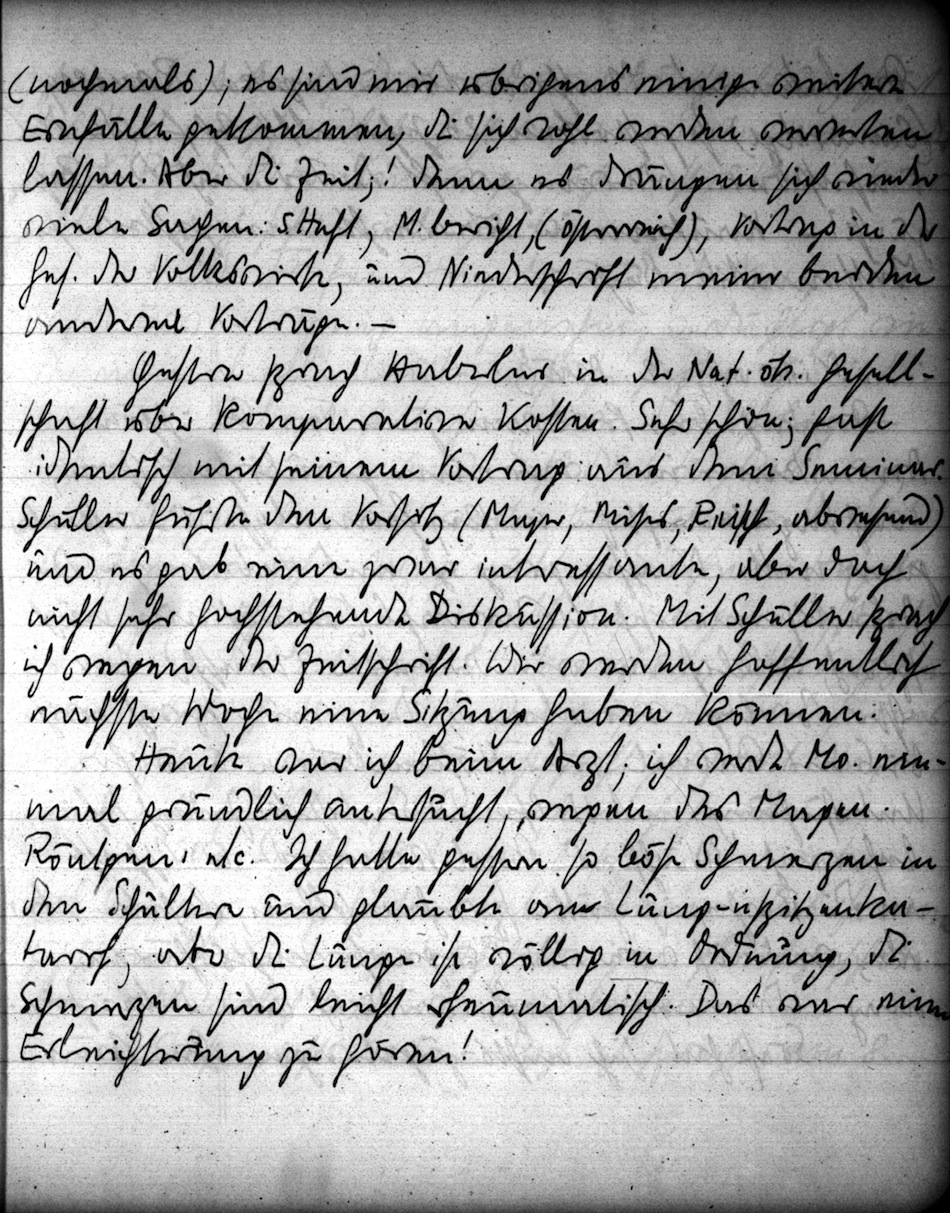 (nochmals); es sind mir übrigens einige weitere
Einfälle gekommen, die sich wohl werden verwerten
lassen. Aber die Zeit,! denn es drängen sich wieder
viele Sachen: SHeft, M.bericht, (Österreich), Vortrag in der
Ges. der Volkswirte, und Niederschrift meiner beiden
anderen Vorträge. —
Gestern sprach Haberler in der Nat. ök. Gesell-
schaft über komparative Kosten. Sehr schön; fast
identisch mit seinem Vortrag aus dem Seminar.
Schüller führte den Vorsitz (Mayer, Mises, Reisch, abwesend)
und es gab eine zwar interessante, aber doch
nicht sehr hochstehende Diskussion. Mit Schüller sprach
ich wegen der Zeitschrift. Wir werden hoffentlich
nächste Woche eine Sitzung haben können.
Heute war ich beim Arzt; ich werde Mo. ein-
mal gründlich untersucht, wegen des Magen.
Röntgen, etc. Ich hatte gestern so böse Schmerzen in
den Schultern und glaubte an Lungenspitzenka-
tarrh, aber die Lunge ist völlig in Ordnung, die
Schmerzen sind leicht rheumatisch. Das war eine
Erleichterung zu hören!